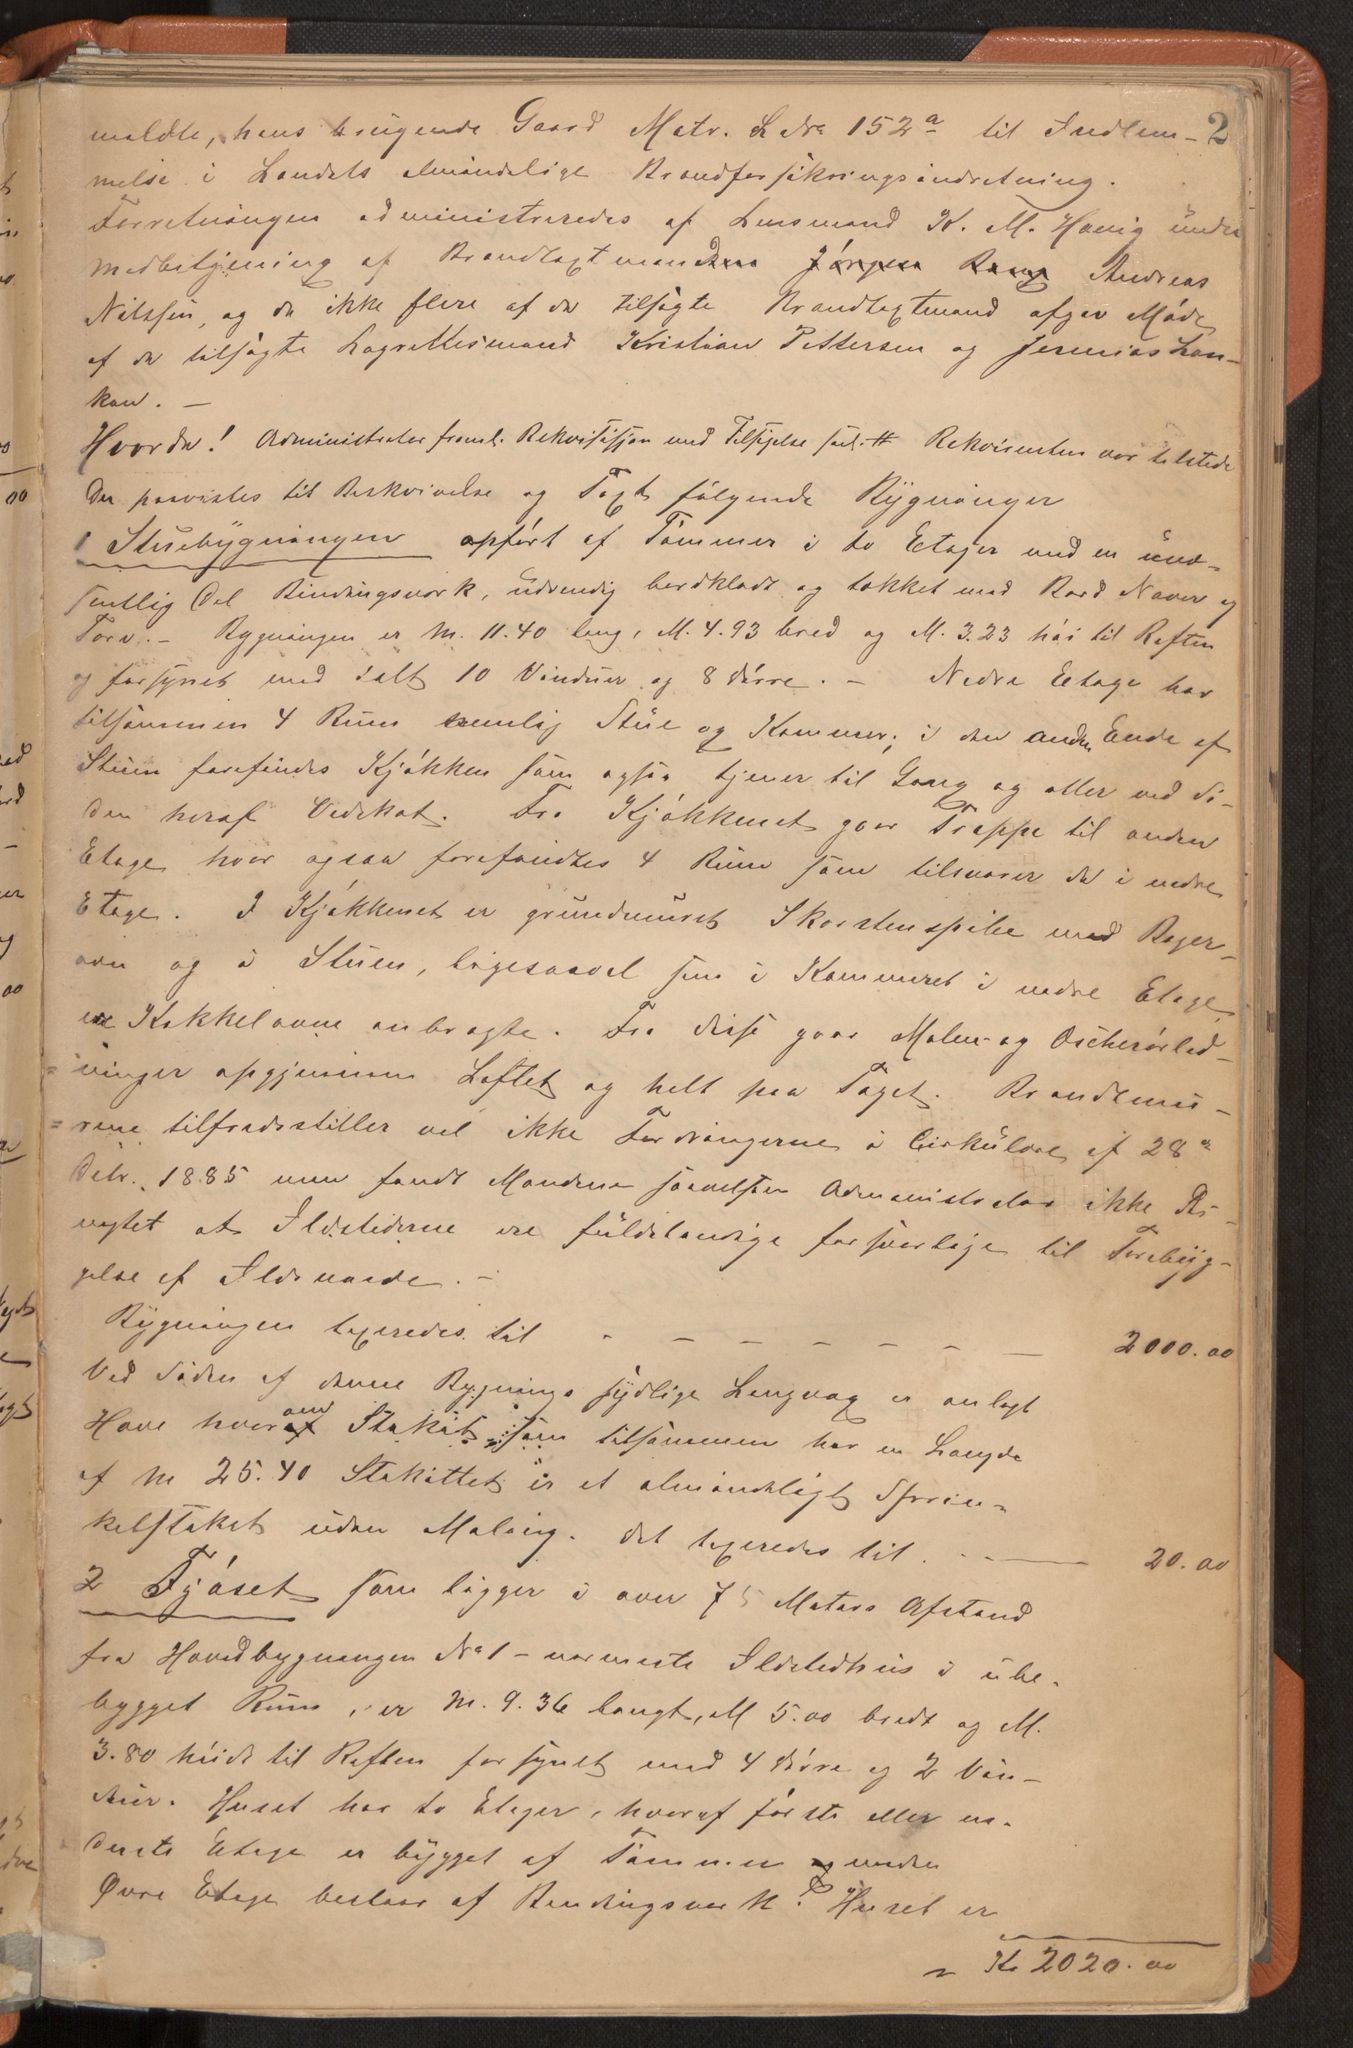 2
meldte, hans brugende Gaard Matr. L. No 152a til Indlem-
melse i Landets almindelige Brandforsikringsindretning.
Forretningen administreredes af Lensmand K. M. Havig under
Medbetjening af Brandtaxtmændene Jørgen Andreas
Nilssen, og da ikke flere af de tilsagte Brandtaxtmænd afgav Møde
af de tilsagte Lagrettesmænd Kristian Pettersen og Jeremias Lan-
kan. —
Hvorda! Administrator freml. Rekvisisjon med Tilsigelse Rekvirenten var tilstede
Der paavistes til Beskrivelse og Taxt følgende Bygninger
1 Stuebygningen opført af Tømmer i to Etager med en uvæ-
sentlig Del Bindingsverk, udvendig bordklædt og tækket med Bord Næver og
Torv. — Bygningen er M. 11.40 lang, M. 4.93 bred og M. 3.23 høi til Raften
og forsynet med ialt 10 Vinduer og 8 Dørre. — Nedre Etage har
tilsammen 4 Rum nemlig Stue og Kammer; i den anden Ende af
Stuen forefindes Kjøkken som ogsaa tjener til Gang og eller ved Si-
den heraf Vedskot. Fra Kjøkkenet gaar Trappe til anden
Etage hvor ogsaa forefandtes 4 Rum som tilsvarer de i nedre
Etage. I Kjøkkenet er grundmuret Skorstenspibe med Bager-
ovn og i Stuen, ligesaavel som i Kammeret i nedre Etage
ere Kakkelovne anbragte. Fra disse gaar Malm- og Oscherørled-
ninger opgjennem Loftet og helt paa Taget. Brandtmu-
rene tilfredsstiller vel ikke Fordringerne i Cirkulære af 28de
Debr. 1885 men fandt Mændene saavelsom Administrator ikke Be-
nægtet at Ildstederne ere fuldstændige forsvarlige til Forebyg-
gelse af Ildsvaade. —
Bygningen taxeredes til — — — — — — — 2000.00
Ved Siden af denne Bygnings sydlige Langvæg er anlagt
Have hvorom Stakit som tilsammen har en Længde
af M 25.40 Stakittet er et almindeligt Sprin-
kelstaket uden Maling. det taxeredes til . — — 20.00
2 Fjøset som ligger i over 75 Meters Afstand
fra Hovedbygningen No 1 – nærmeste Ildstedhus i ube-
bygget Rum, er M. 9.36 langt, M 5.00 bredt og M.
3.80 høidt til Raften forsynet med 4 Dørre og 2 Vin-
duer. Huset har to Etager, hvoraf første eller un-
derste Etage er bygget af Tømmer medens
Øvre Etage bestaar af Bindingsverk. Huset er
Kr 2020.00